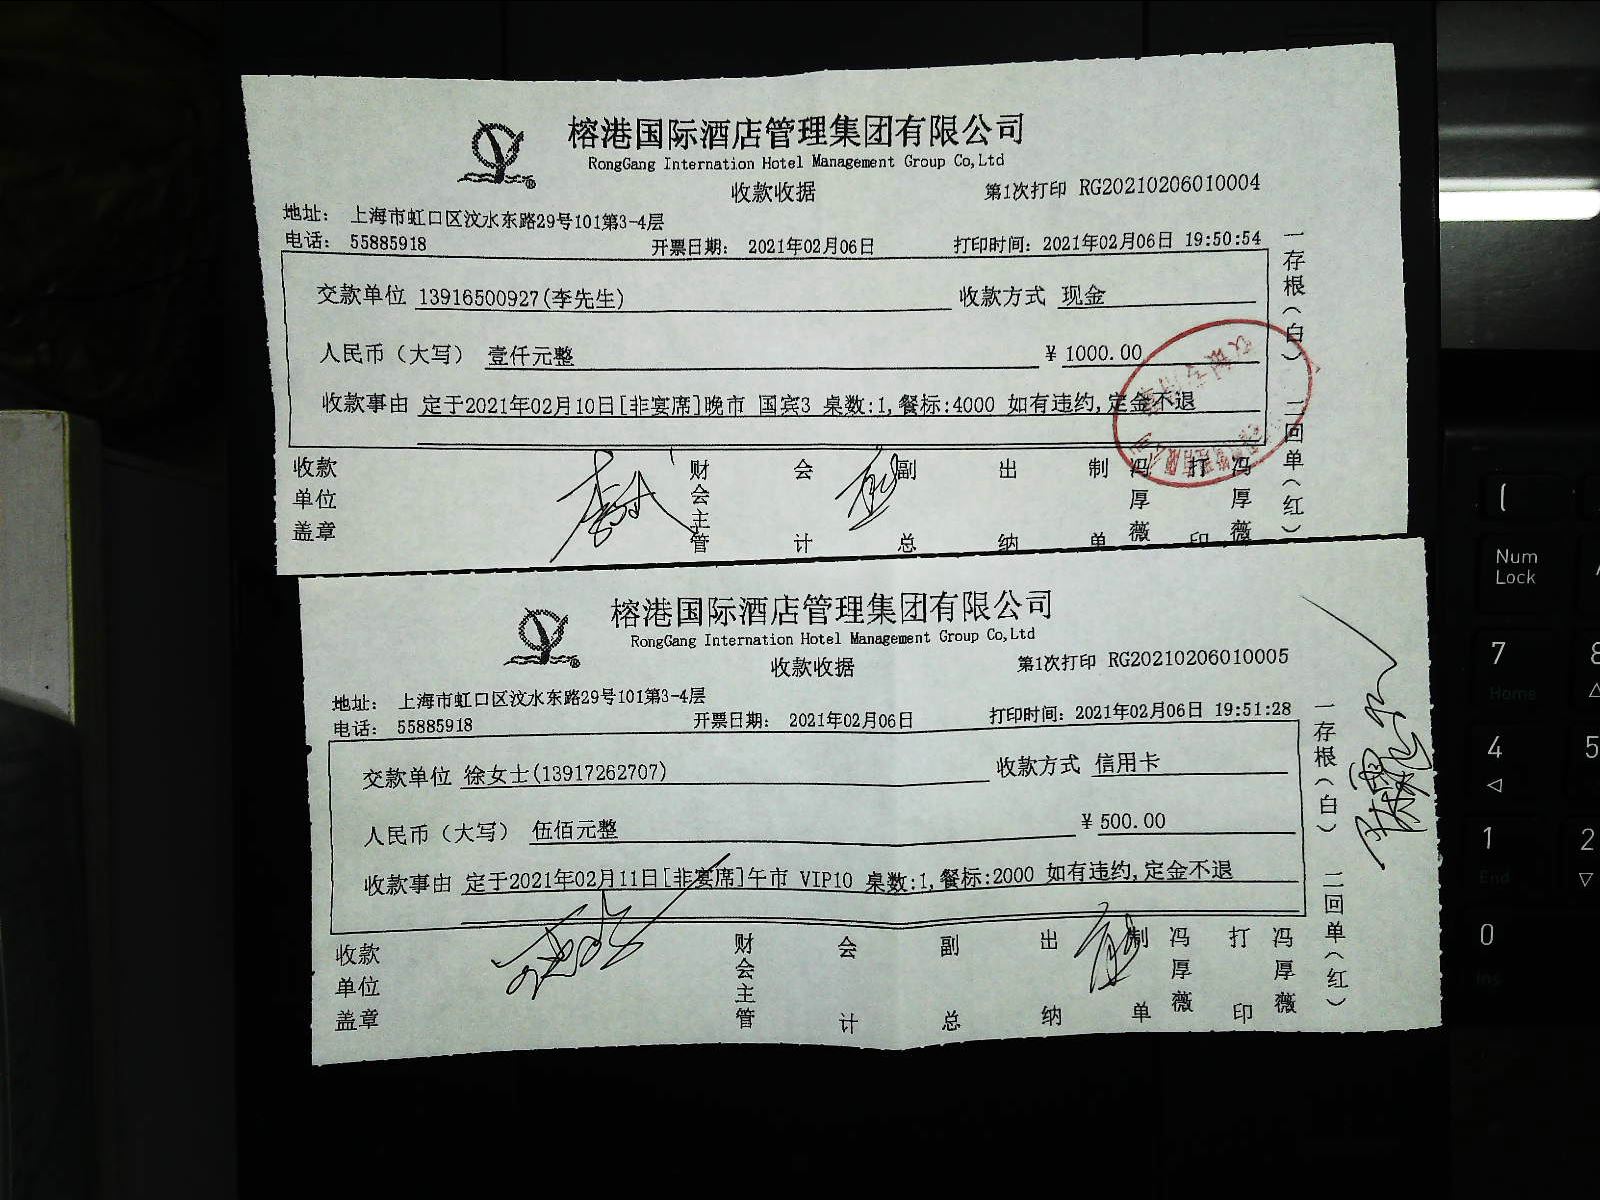 榕港国际酒店管理集团有限公司
RongGang Internation Hotel Management Group Co,Ltd
收款收据
第1次打印 RG20210206010004
地址： 上海市虹口区汶水东路29号101第3-4层
电话： 55885918 开票日期： 2021年02月06日 打印时间：2021年02月06日 19:50:54
交款单位 13916500927(李先生) 收款方式 现金
人民币（大写） 壹仟元整 ￥1000.00
收款事由 定于2021年02月10日[非宴席]晚市 国宾3 桌数:1,餐标:4000 如有违约,定金不退
一存根（白） 二回单（红）
收款单位盖章 财会主管 会计 副总 出纳 制单 冯厚薇 打印 冯厚薇
榕港国际酒店管理集团有限公司
RongGang Internation Hotel Management Group Co,Ltd
收款收据
第1次打印 RG20210206010005
地址： 上海市虹口区汶水东路29号101第3-4层
电话： 55885918 开票日期： 2021年02月06日 打印时间：2021年02月06日 19:51:28
交款单位 徐女士(13917262707) 收款方式 信用卡
人民币（大写） 伍佰元整 ￥500.00
收款事由 定于2021年02月11日[非宴席]午市 VIP10 桌数:1,餐标:2000 如有违约,定金不退
一存根（白） 二回单（红）
收款单位盖章 财会主管 会计 副总 出纳 制单 冯厚薇 打印 冯厚薇
Num Lock
7
Home
4
5
1
End
2
0
Ins